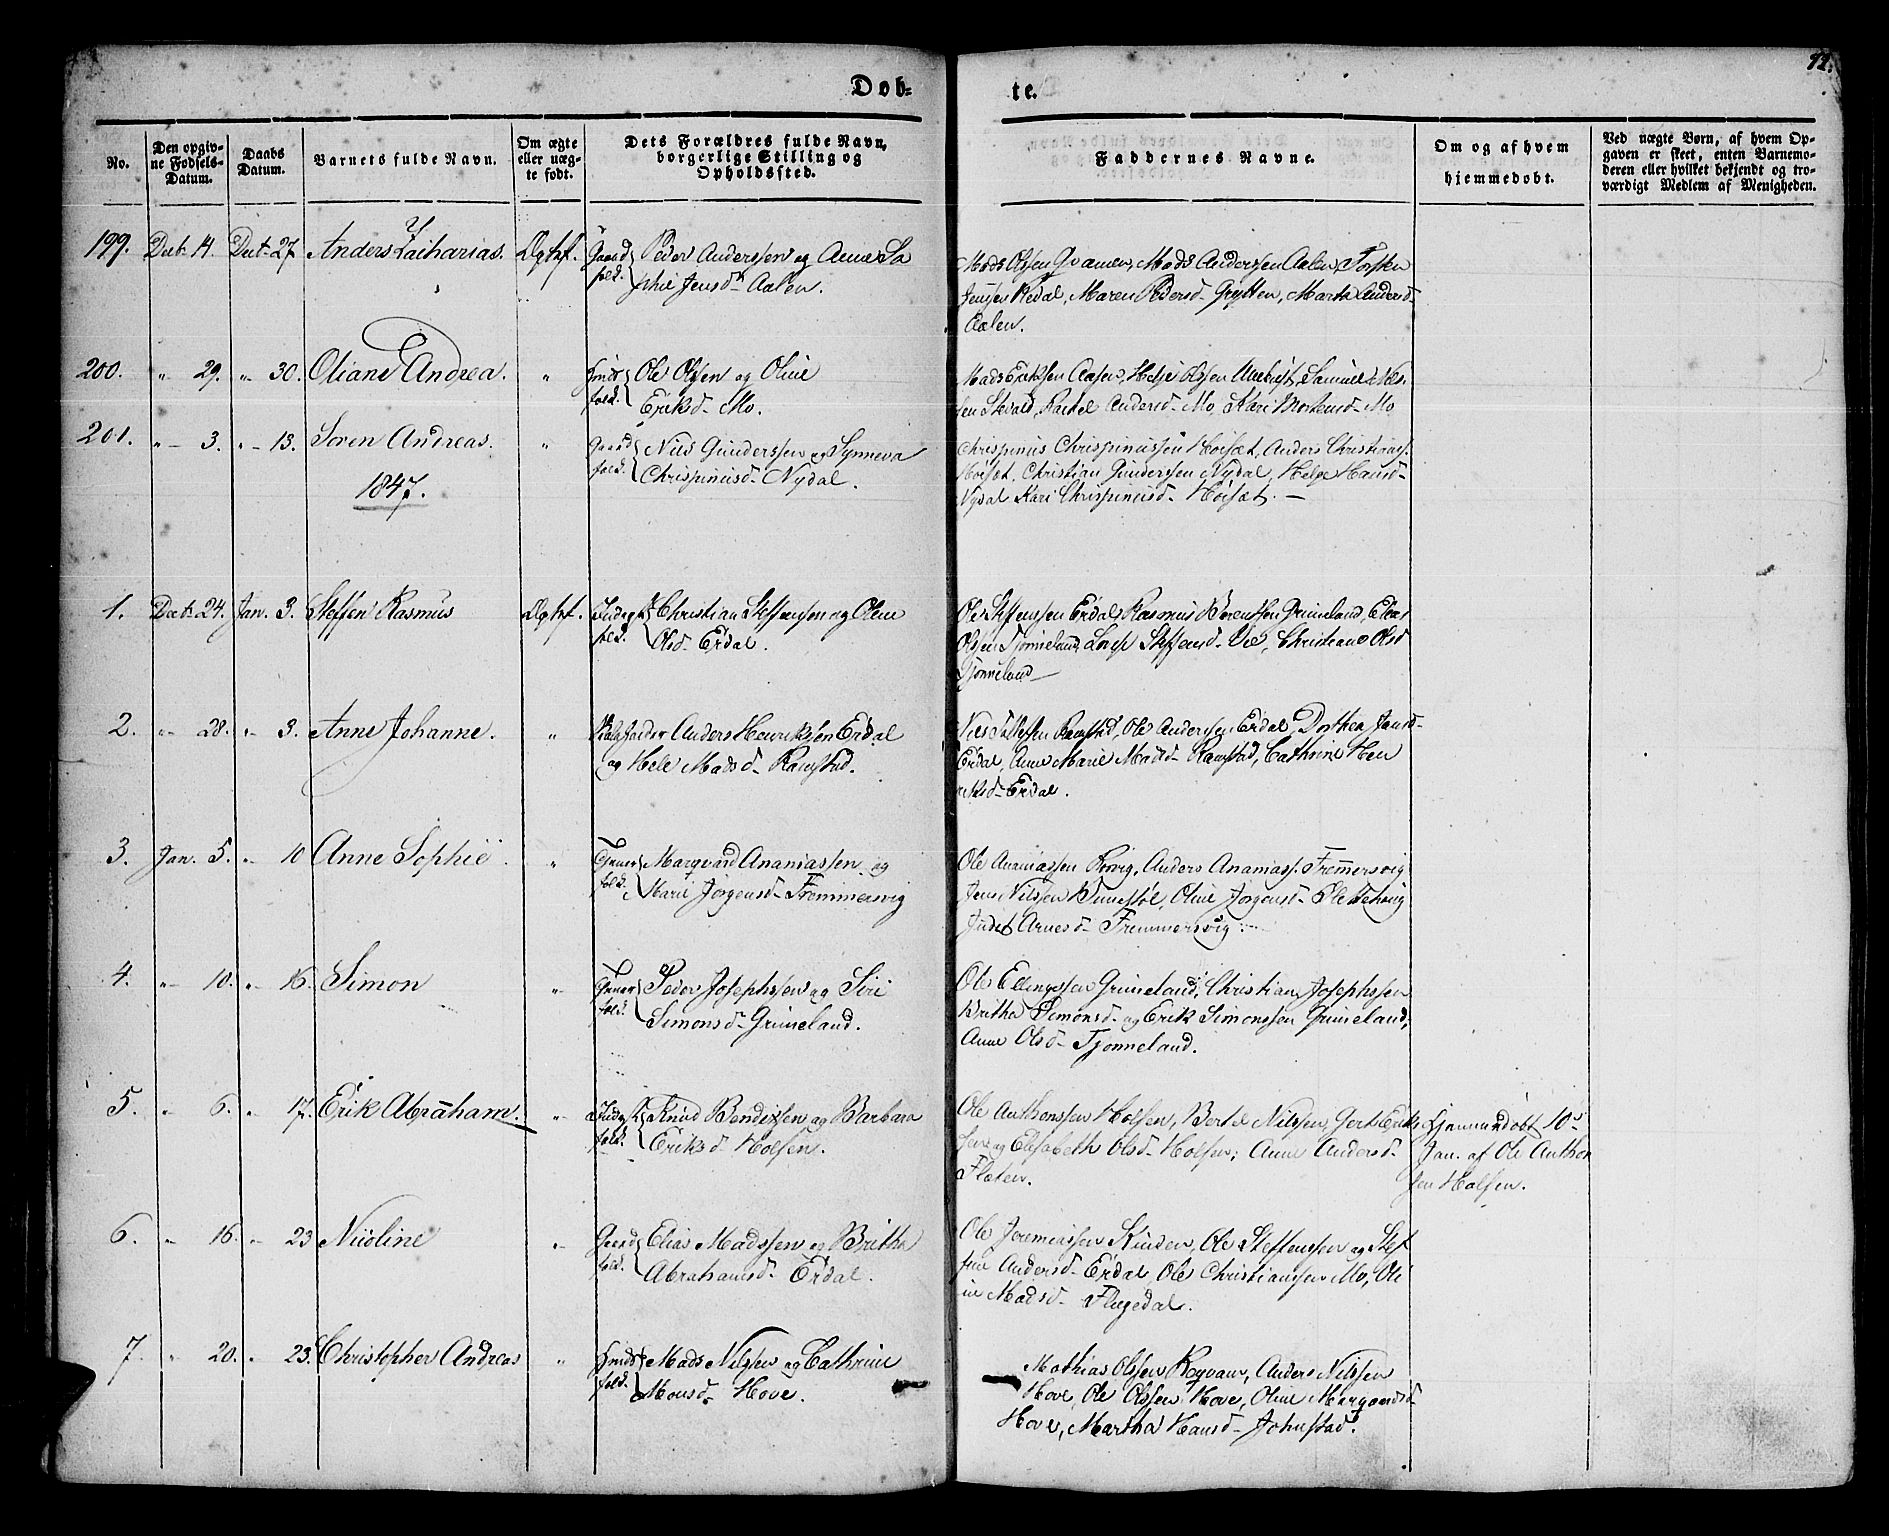 Døb=
te.
No.
Den opgiv-
ne Fødsels-
Datum.
Daabs
Datum.
Barnets fulde Navn.
Om ægte
eller uæg-
te født.
Dets Forældres fulde Navn,
borgerlige Stilling og
Opholdssted.
Faddernes Navne.
Om og af hvem
hjemmedøbt.
Ved uægte Børn, af hvem Op-
gaven er skeet, enten Barnemo-
deren eller hvilket bekjendt og tro-
værdigt Medlem af Menigheden.
199. Decb. 14. Decb. 27 Anders Zacharias. Peder Anderssen og Anne So
phie Jensd. Aalen.
Mads Olssen Qvamen, Mads Anderssen Aalen, Torsten
Jenssen Redal, Maren Pedersd. Grytten, Martha Andersd.
Aalen.
200. " 29. " 30. Oliane Andrea. " Ole Olssen og Oline
Eriksd. Mo.
Mads Erikssen Aasen, Helje Olssen, Samuel
Rachel Andersd. Mo, Kari Mortensd. Mo
201. " 3. " 13. Søren Andreas. " Nils Gunderssen og Synneva
Chrispinusd. Nydal.
1847.
Chrispinus Chrispinussen Høisæt, Anders Christians.
Høisæt, Christian Gunderssen Nydal, Helge Hansd.
Nydal Kari Chrispinusd. Høisæt. —
1. Decb. 24. Jan. 3. Steffen Rasmus Christian Steffenssen og Olene
Olsd. Erdal.
Ole Steffenssen Erdal, Rasmus Berentssen Grimeland, Elias
Olssen Tjønneland, Steffensd. Vie, Christiane Olsd.
Tjønneland
2. " 28. " 3. Anne Johanne. " Anders Henrikssøn Erdal
og Hele Madsd. Ramstad.
Nils Ramstad, Ole Anderssen Erdal, Dorthea Jansd.
Erdal, Anne Marie Madsd. Ramstad, Cathrine Hen
riksd. Erdal.
3. Jan. 5. " 10 Anne Sophie. " Marqvard Ananiassen og
Marie Jørgensd. Fremmersvig
Ole Ananiassen, Anders Ananiass. Fremmersvig
Jens Nilssen, Oline Jørgensd. Slettehaug
Judet Arnesd. Fremmersvig.
4. " 10. " 16. Simon " Peder Josephssen og Siri
Simonsd. Grimeland.
Ole Ellingssen Grimeland, Christian Josephssen
Britha Simonsd. og Erik Simonssen Grimeland,
Anne Olsd. Tjønneland.
5. " 6. " 17. Erik Abraham. " Knud Bendixsen og Barbara
Eriksd. Holsen.
Ole Anthonssen Holsen, Bertel Nilssen, Gert Eriks
sen og Elisabeth Olsd. Holsen, Anne Andersd.
Flaten.
Hjemmedøbt 10de
Jan. af Ole Anthon
sen Holsen.
6. " 16. " 23 Nicoline " Elias Madssen og Britha
Abrahamsd. Erdal.
Ole Jeremiassen Kinden, Ole Steffenssen og Stef
fine Andersd. Erdal, Ole Christianssen Mo, Oli
ne Madsd. Flugedal.
7. " 20. " 23. Christopher Andreas " Mads Nilssen og Cathrine
Monsd. Hove.
Mathias Olssen, Anders Nilssen
Hove, Ole Olssen Hove, Oline Marqvardsd.
Hove, Martha Hansd. Johnstad.